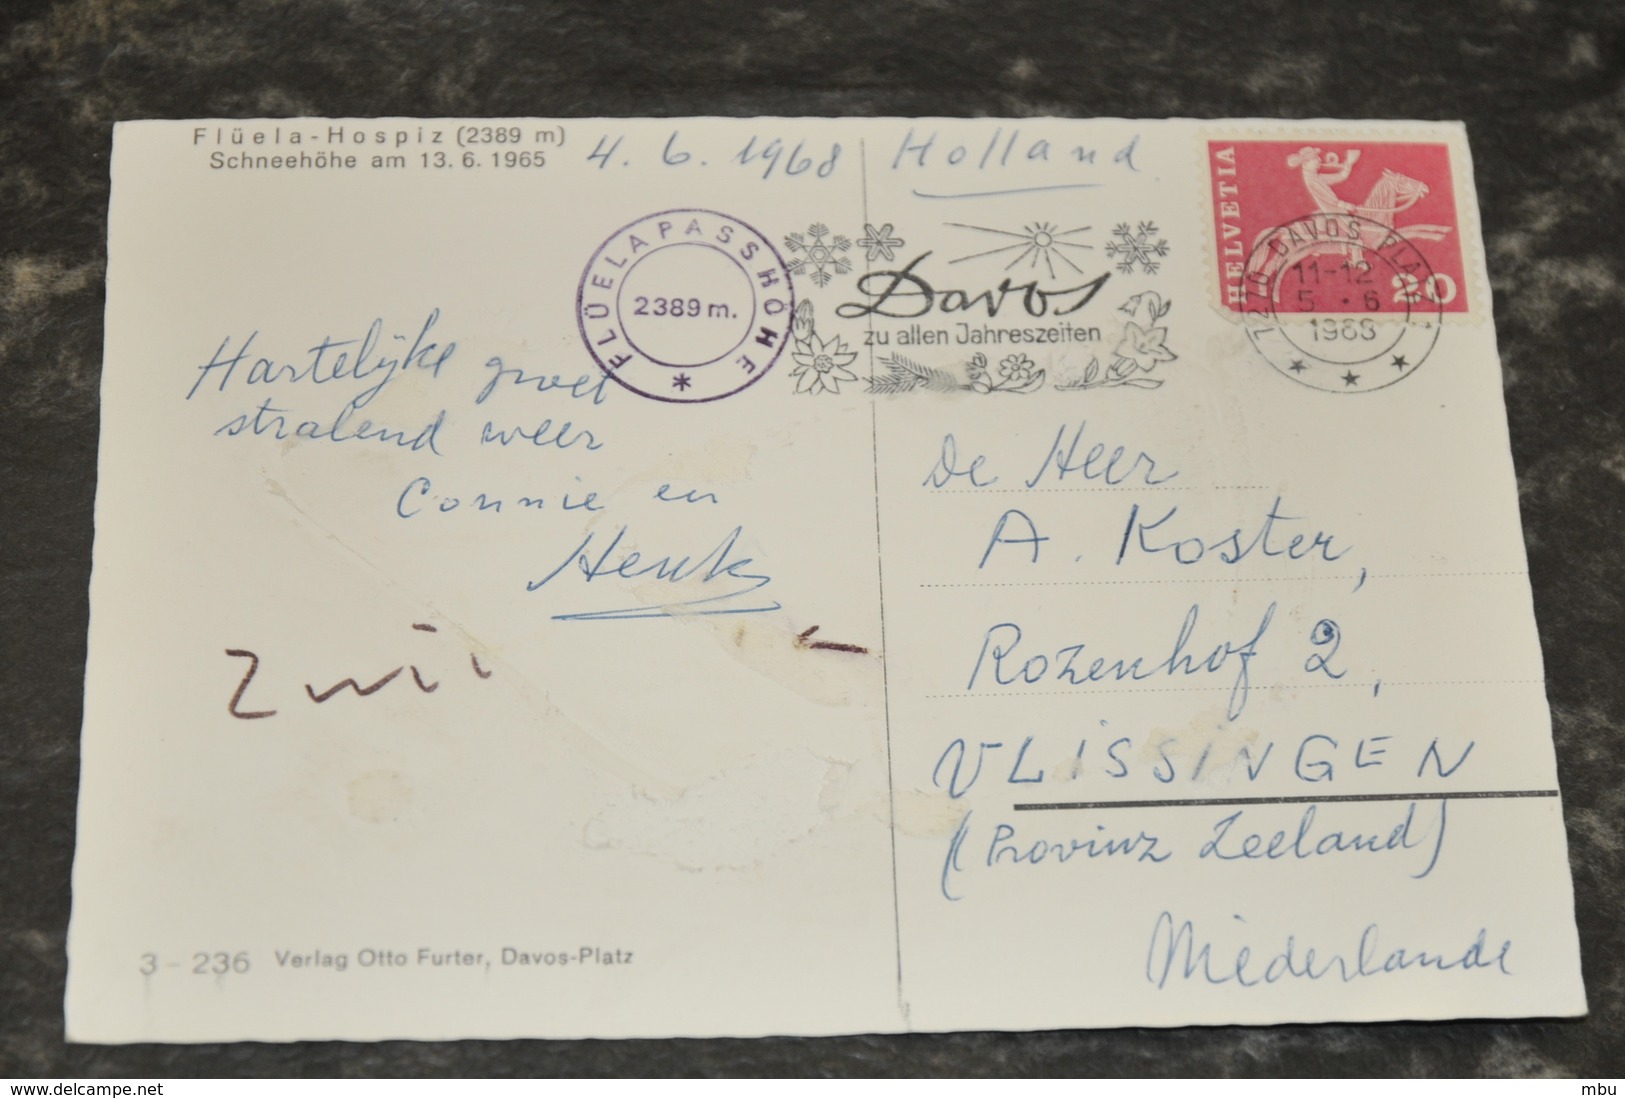 Flüela-Hospiz (2389 m)
Schneehöhe am 13.6.1965
4. 6. 1968
Holland
HELVETIA
20
FLÜELAPASSHÖHE
2389 m.
Davos
zu allen Jahreszeiten
7270 DAVOS PLATZ 1
11-12
5.·6
1968
Hartelijke groet
stralend weer
Connie en
Henk
De Heer
A. Koster,
Rozenhof 2,
VLISSINGEN
(Provinz Zeeland)
Niederlande
3-236 Verlag Otto Furter, Davos-Platz
delcampe.net
mbu